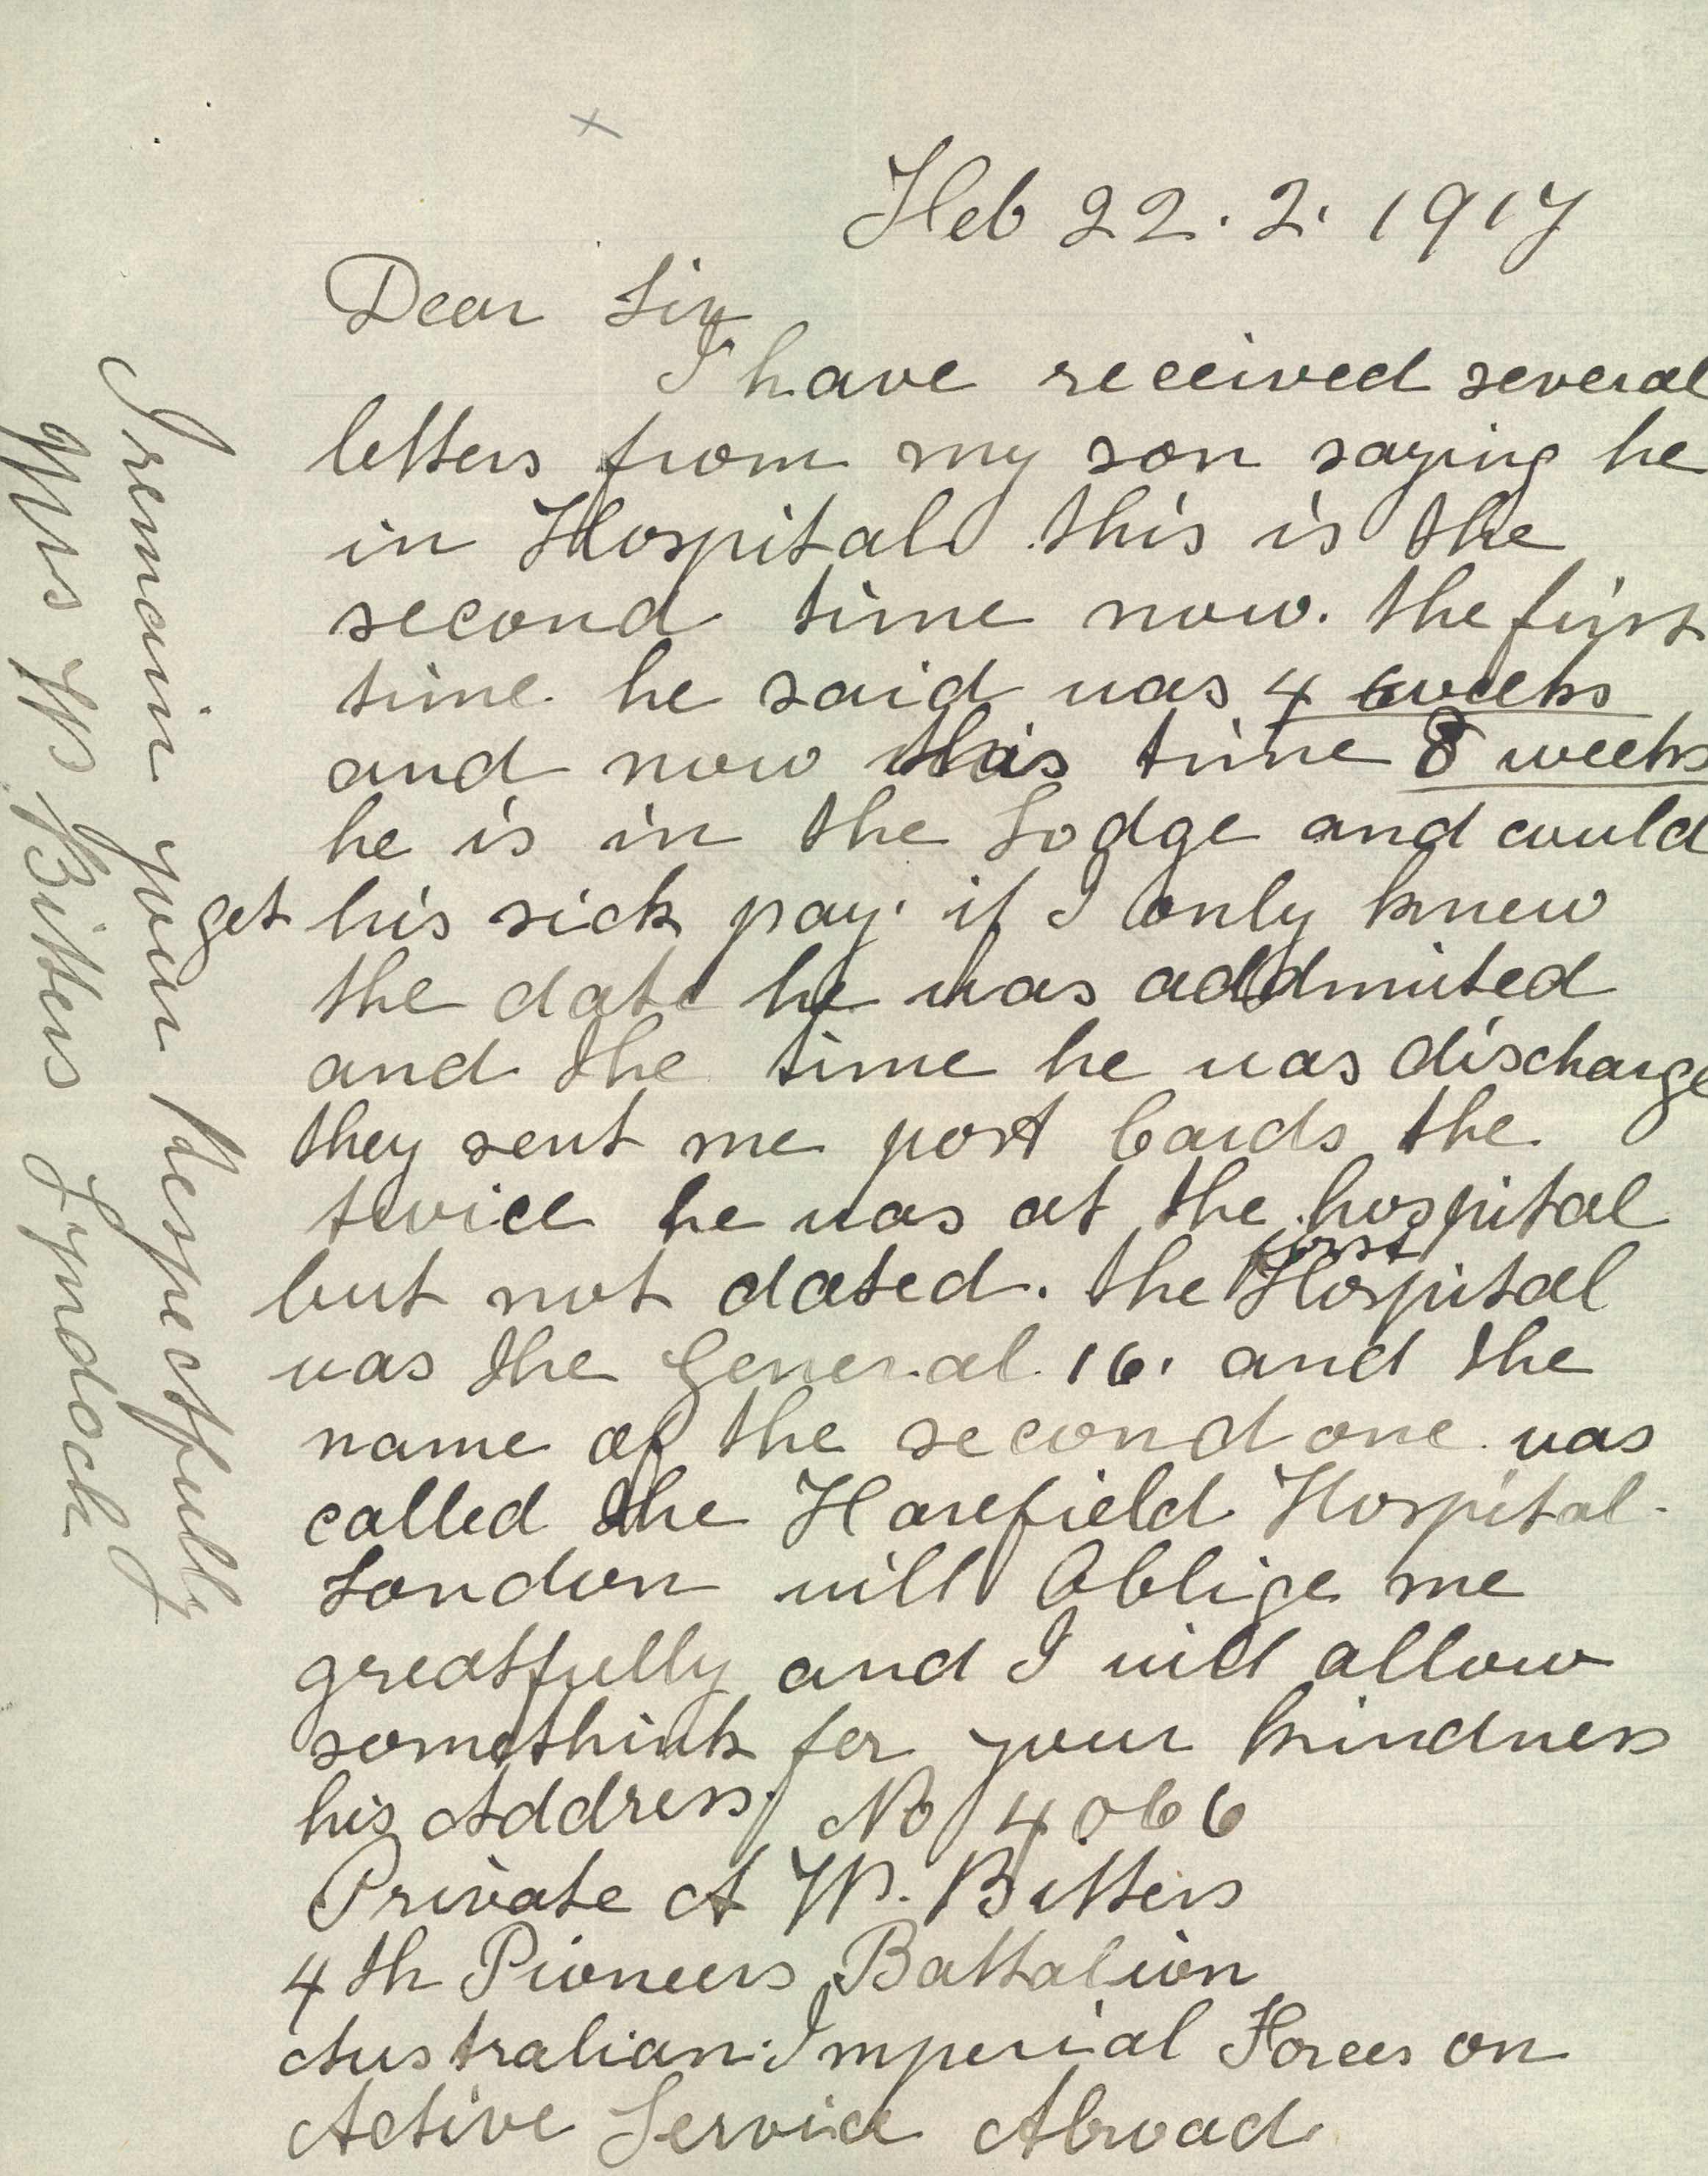 Feb 22.2.1917
Dear Sir
I have received several
letters from my son saying he
in Hospital this is the
second time now. the first
time he said was 4 weeks
and now this time 8 weeks
he is in the Lodge and could
get his sick pay. if I only knew
the date he was addmited
and the time he was discharge
they sent me post Cards the
twice he was at the hospital
first
but not dated. the Hospital
was the General 16. and the
name of the second one was
called the Harefield Hospital
London will Oblige me
greatfully and I will allow
somethink for your kindness
his Address. No 4066
Private A W. Bitters
4th Pioneers Battalion
Australian Imperial Forces on
Active Service Abroad
I remain your Respectfully
Mrs W Bitters Lyndoch